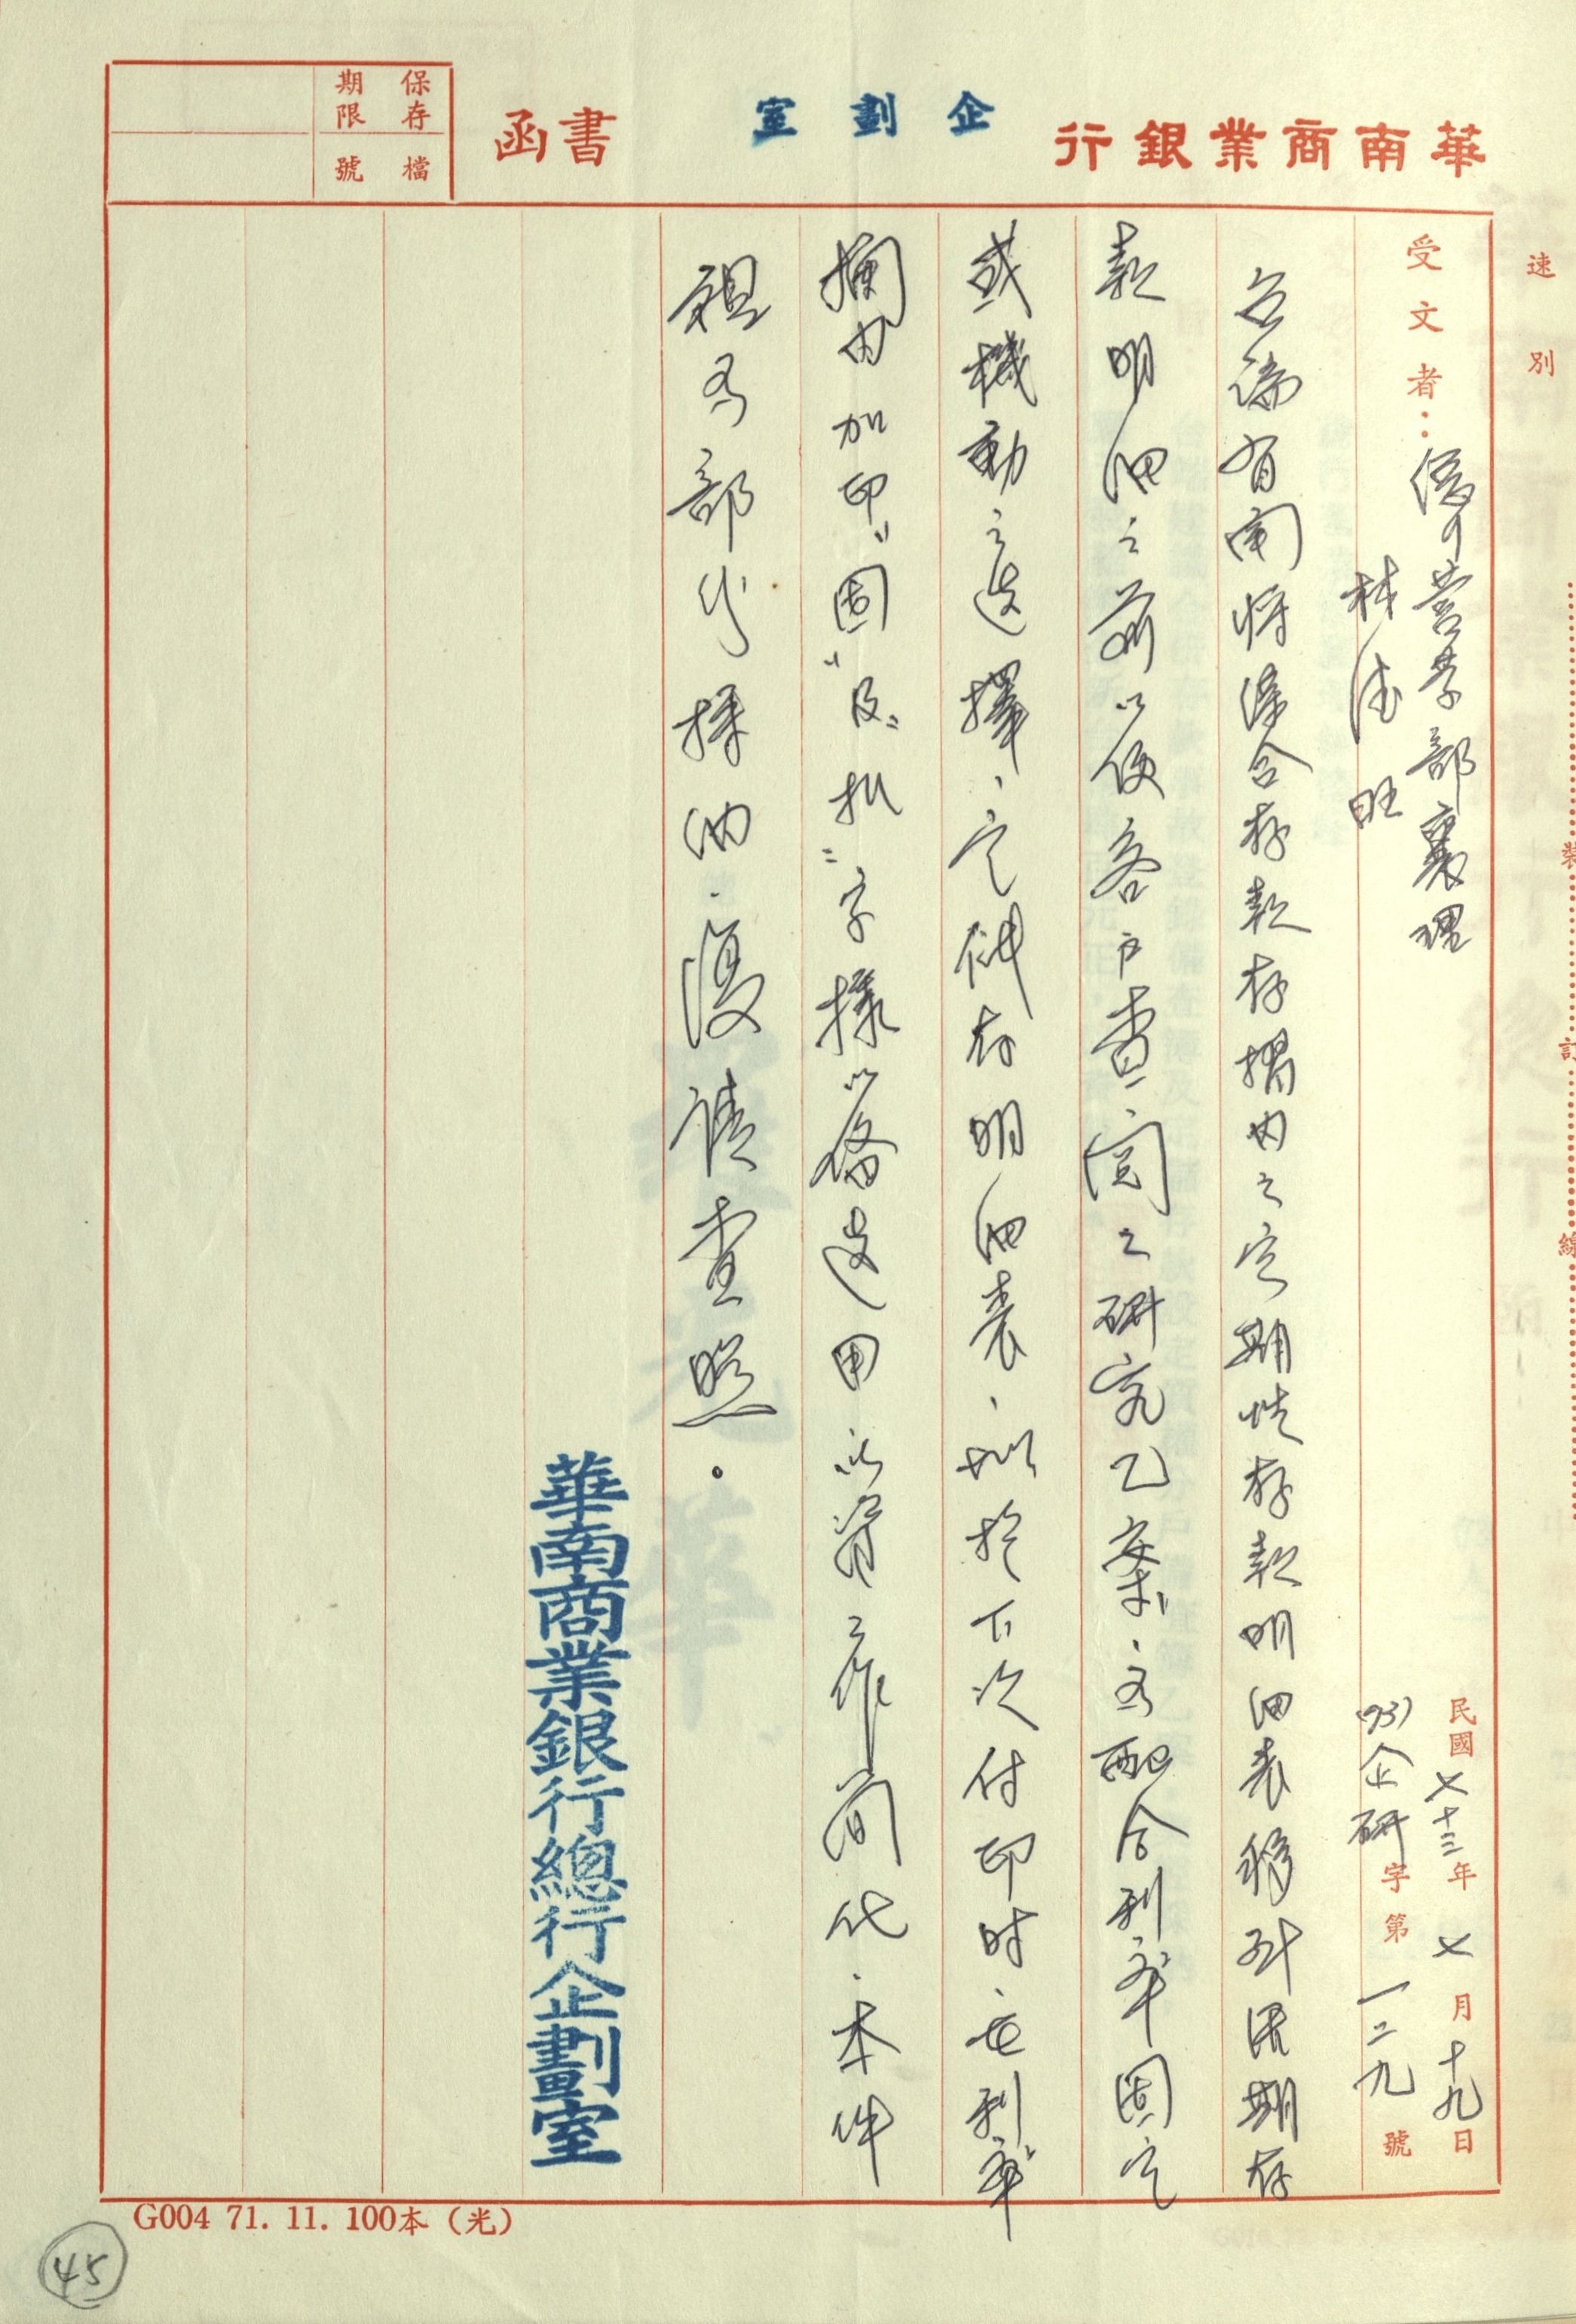 華南商業銀行 企劃室 書函
保存期限
檔號
速別
受文者：儲蓄部襄理
林德旺
民國七十三年七月十九日
(73)企研字第一二九號
台端有關將綜合存款存摺內之定期性存款明細表移列活期存
款明細之前以便客戶查閱之研究乙案，為配合利率固定
或機動之選擇，定儲存明細表，擬於下次付印時，在利率
欄內加印"固"及"机"字樣以備選用，以資工作簡化，本件
組為部分採納，復請查照。
華南商業銀行總行企劃室
裝訂線
G004 71. 11. 100本（光）
45